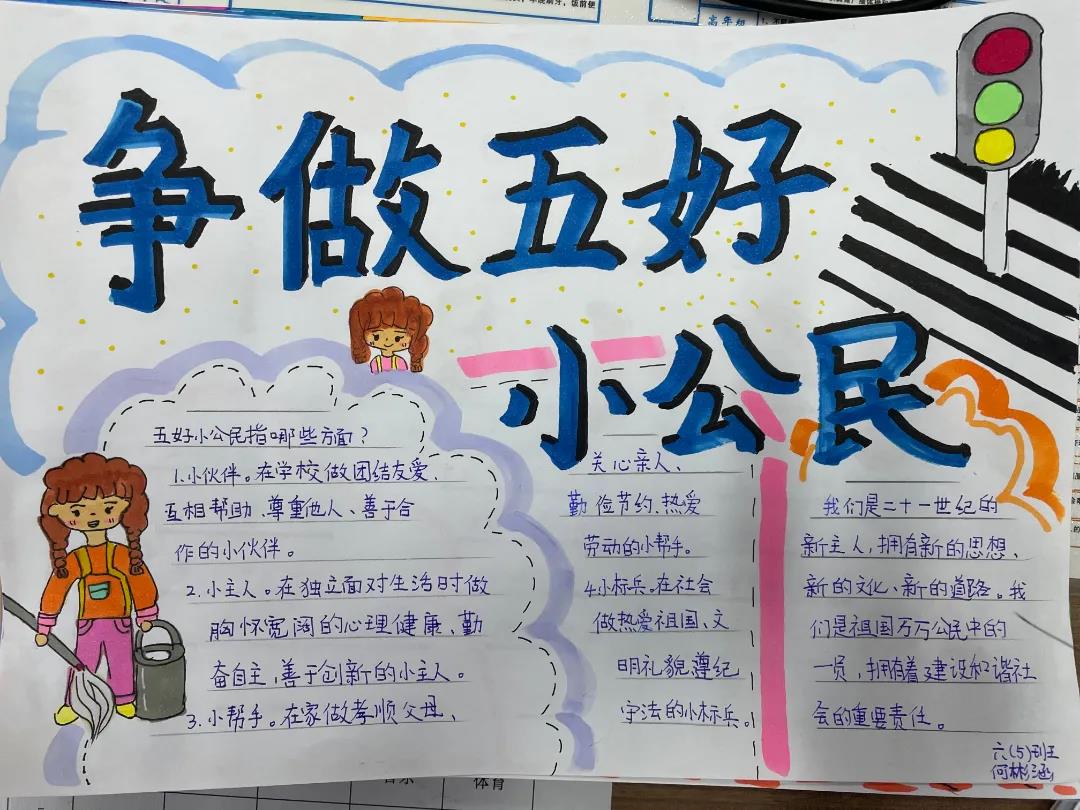 争做五好
小公民
五好小公民指哪些方面？
1.小伙伴。在学校做团结友爱、
互相帮助、尊重他人、善于合
作的小伙伴。
2.小主人。在独立面对生活时做
胸怀宽阔的心理健康、勤
奋自主，善于创新的小主人。
3.小帮手。在家做孝顺父母、
关心亲人、
勤俭节约、热爱
劳动的小帮手。
4.小标兵。在社会
做热爱祖国、文
明礼貌、遵纪
守法的小标兵。
我们是二十一世纪的
新主人，拥有新的思想、
新的文化、新的道路。我
们是祖国万万公民中的
一员，拥有着建设和谐社
会的重要责任。
六(5)班
何彬涵
体育